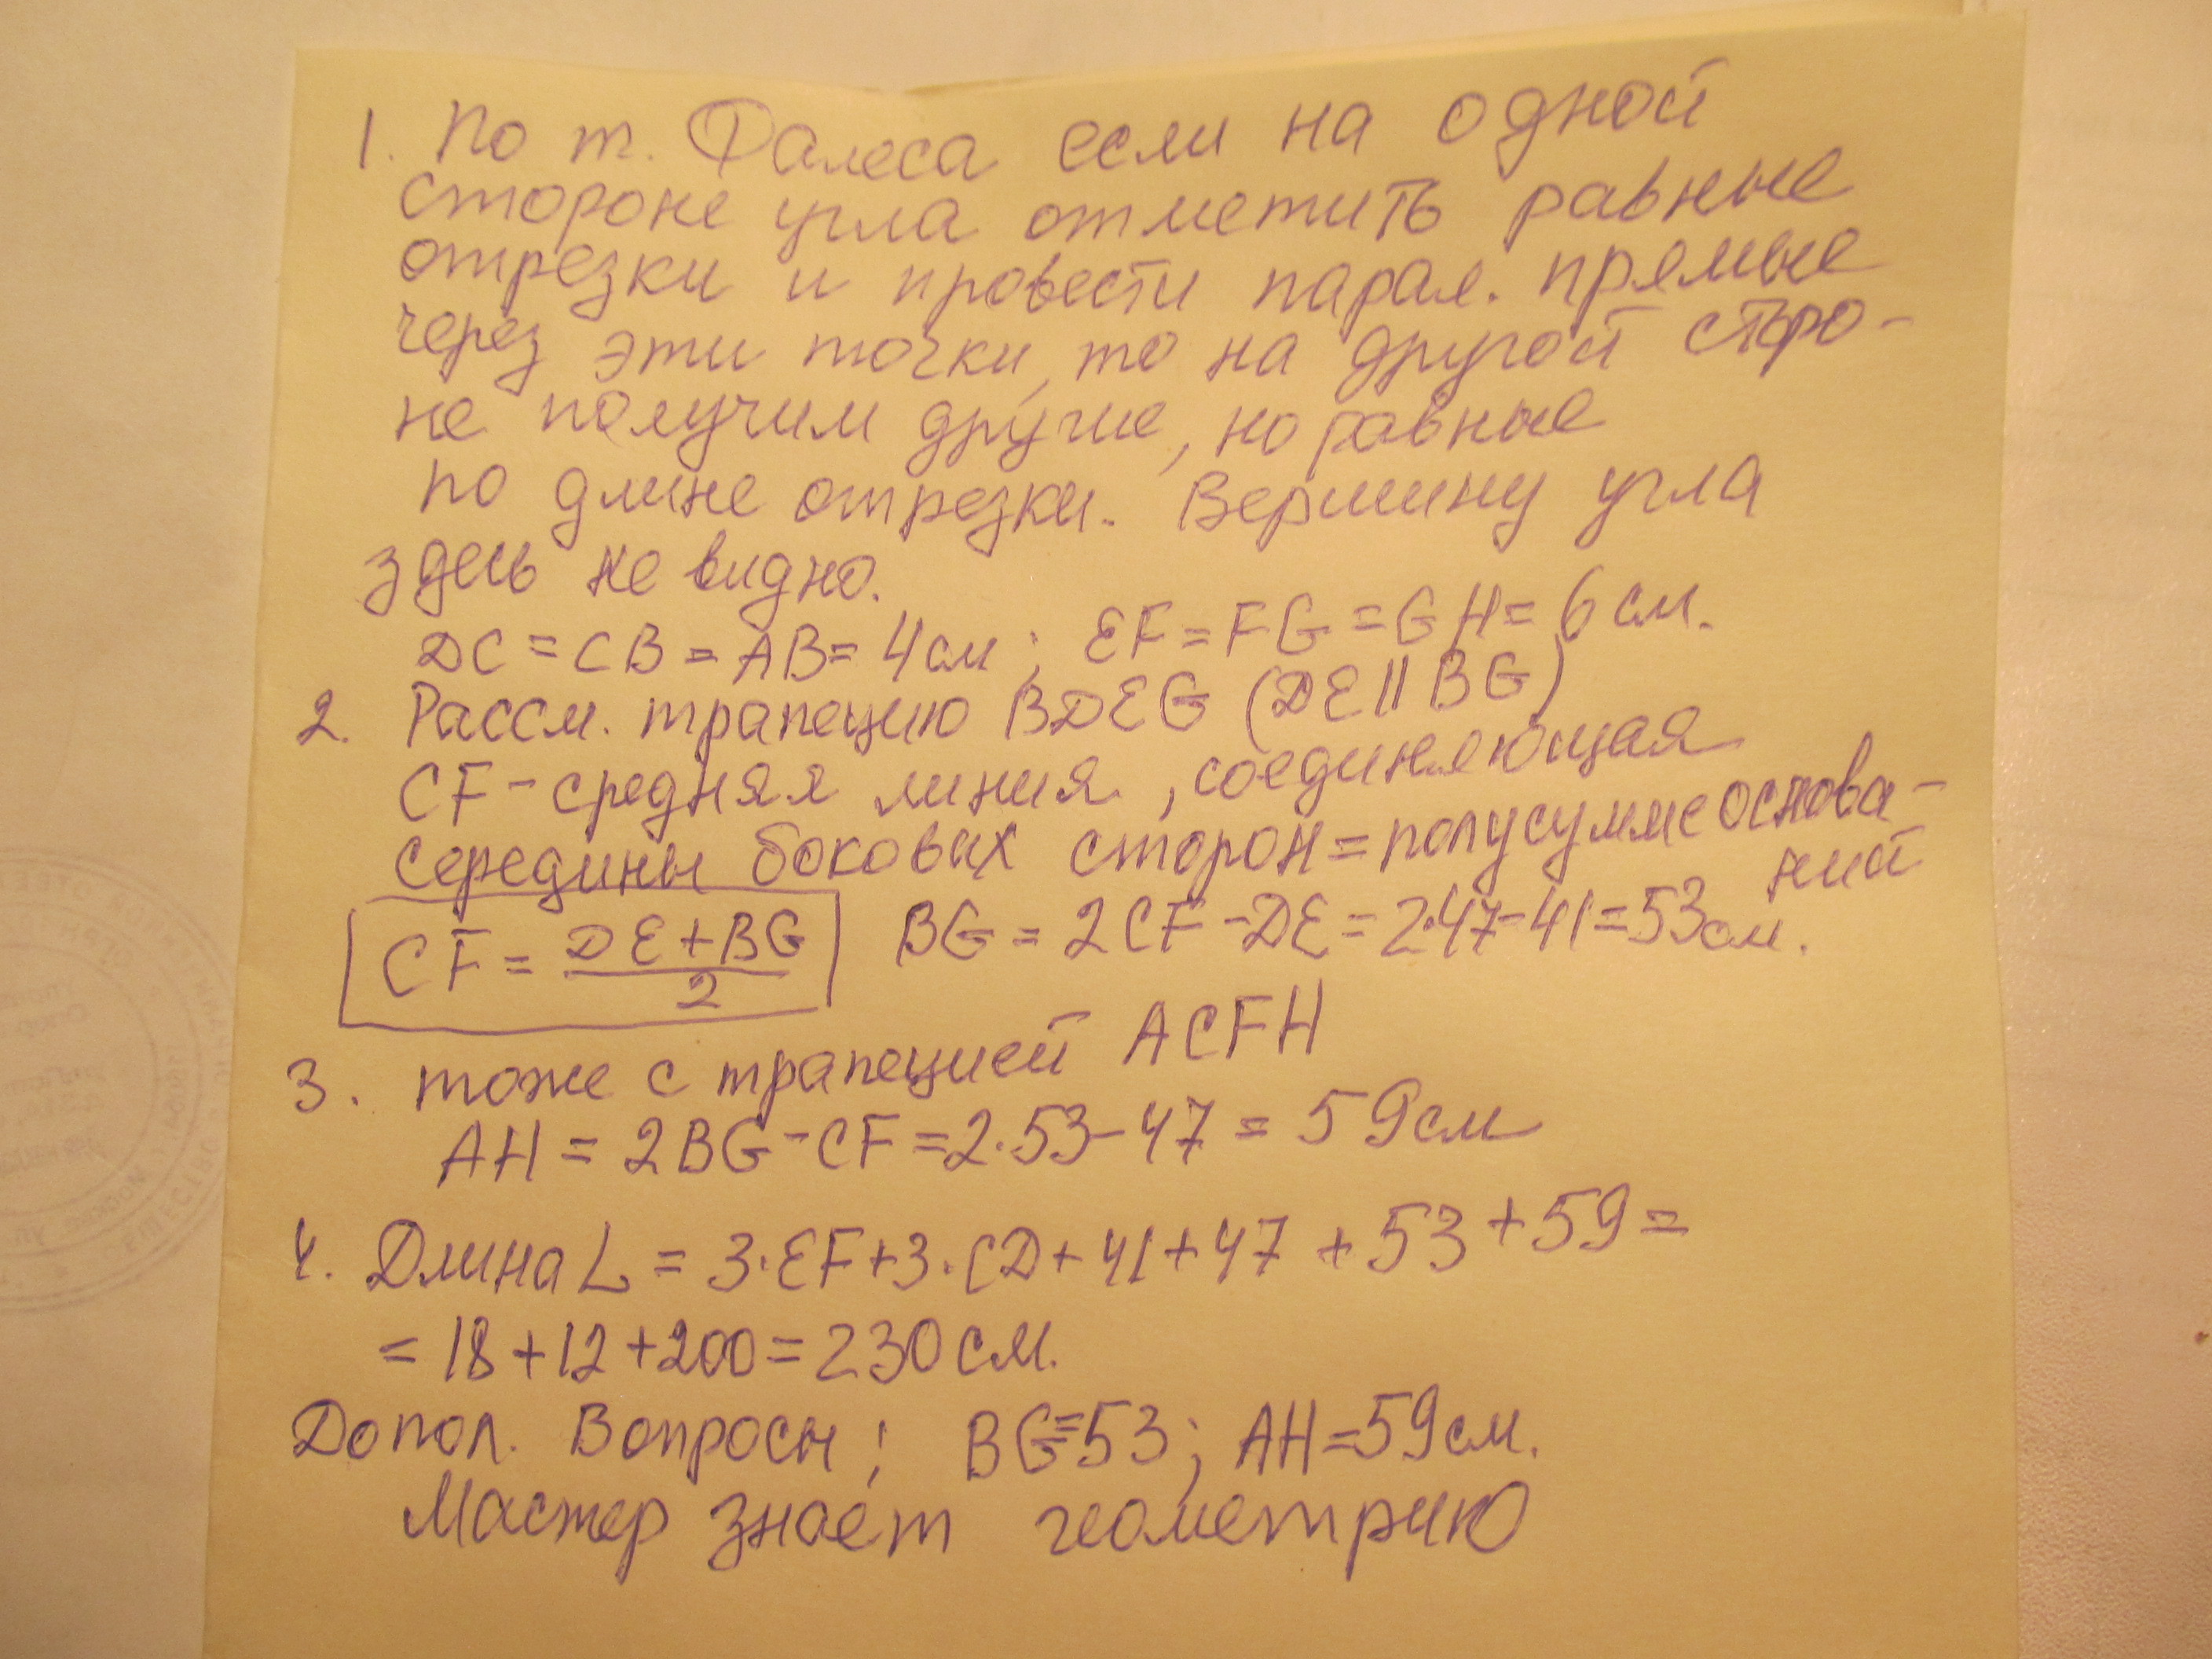 1. По т. Фалеса если на одной
стороне угла отметить равные
отрезки и провести парал. прямые
через эти точки, то на другой сторо-
не получим другие, но равные
по длине отрезки. Вершину угла
здесь не видно.
DC = CB = AB = 4 см; EF = FG = GH = 6 см.
2. Рассм. трапецию BDEG (DE || BG)
CF - средняя линия, соединяющая
середины боковых сторон = полусумме основа-
ний
CF = (DE + BG)/2 BG = 2CF - DE = 2·47 - 41 = 53 см.
3. тоже с трапецией ACFH
AH = 2BG - CF = 2·53 - 47 = 59 см
4. Длина L = 3·EF + 3·CD + 41 + 47 + 53 + 59 =
= 18 + 12 + 200 = 230 см.
Допол. Вопросы; BG = 53; AH = 59 см.
Мастер знает геометрию